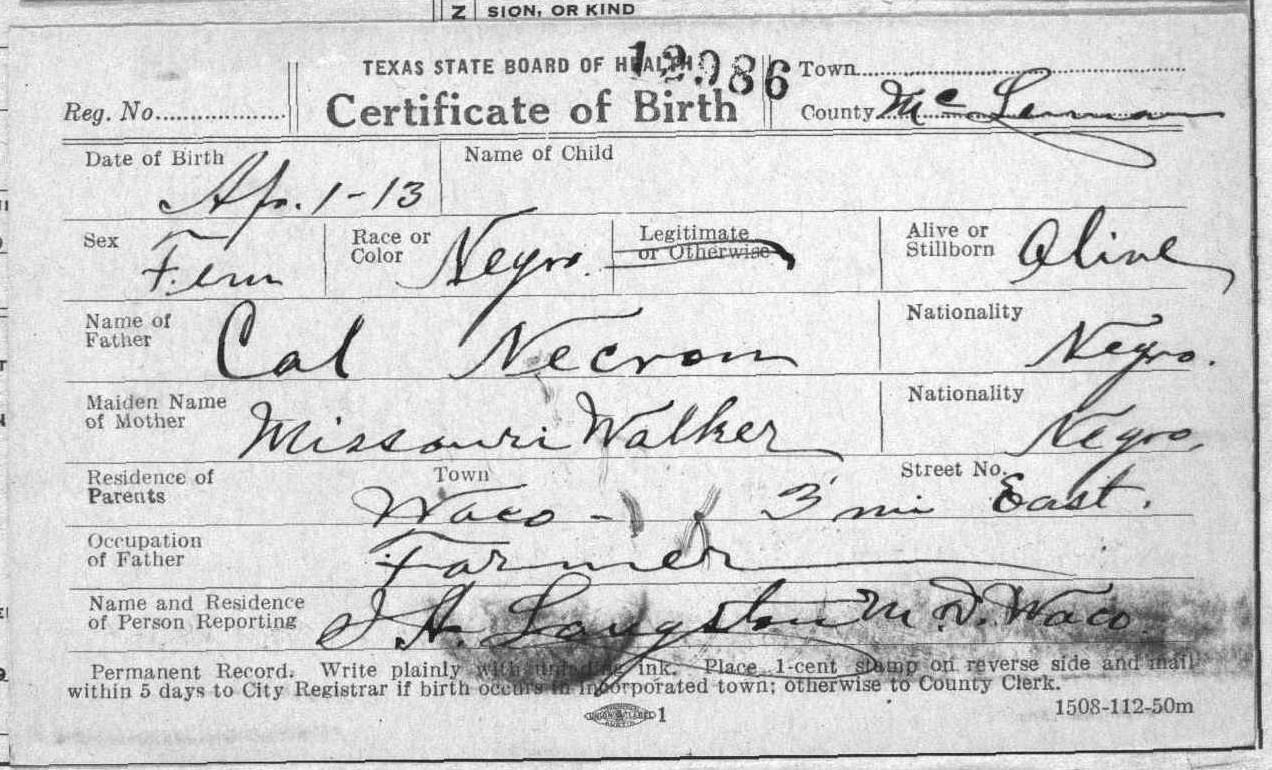 Z SION, OR KIND
TEXAS STATE BOARD OF HEALTH 12986 Town
Reg. No. Certificate of Birth County Mc Lennan
Date of Birth Ap. 1-13 Name of Child
Sex Fem Race or Color Negro. Legitimate or Otherwise Alive or Stillborn Alive
Name of Father Cal Necrom Nationality Negro.
Maiden Name of Mother Missouri Walker Nationality Negro.
Residence of Parents Town Waco - 3 mi Street No. East.
Occupation of Father Farmer
Name and Residence of Person Reporting J. H. Langston M.D. Waco
Permanent Record. Write plainly with unfading ink. Place 1-cent stamp on reverse side and mail
within 5 days to City Registrar if birth occurs in incorporated town; otherwise to County Clerk.
1 1508-112-50m